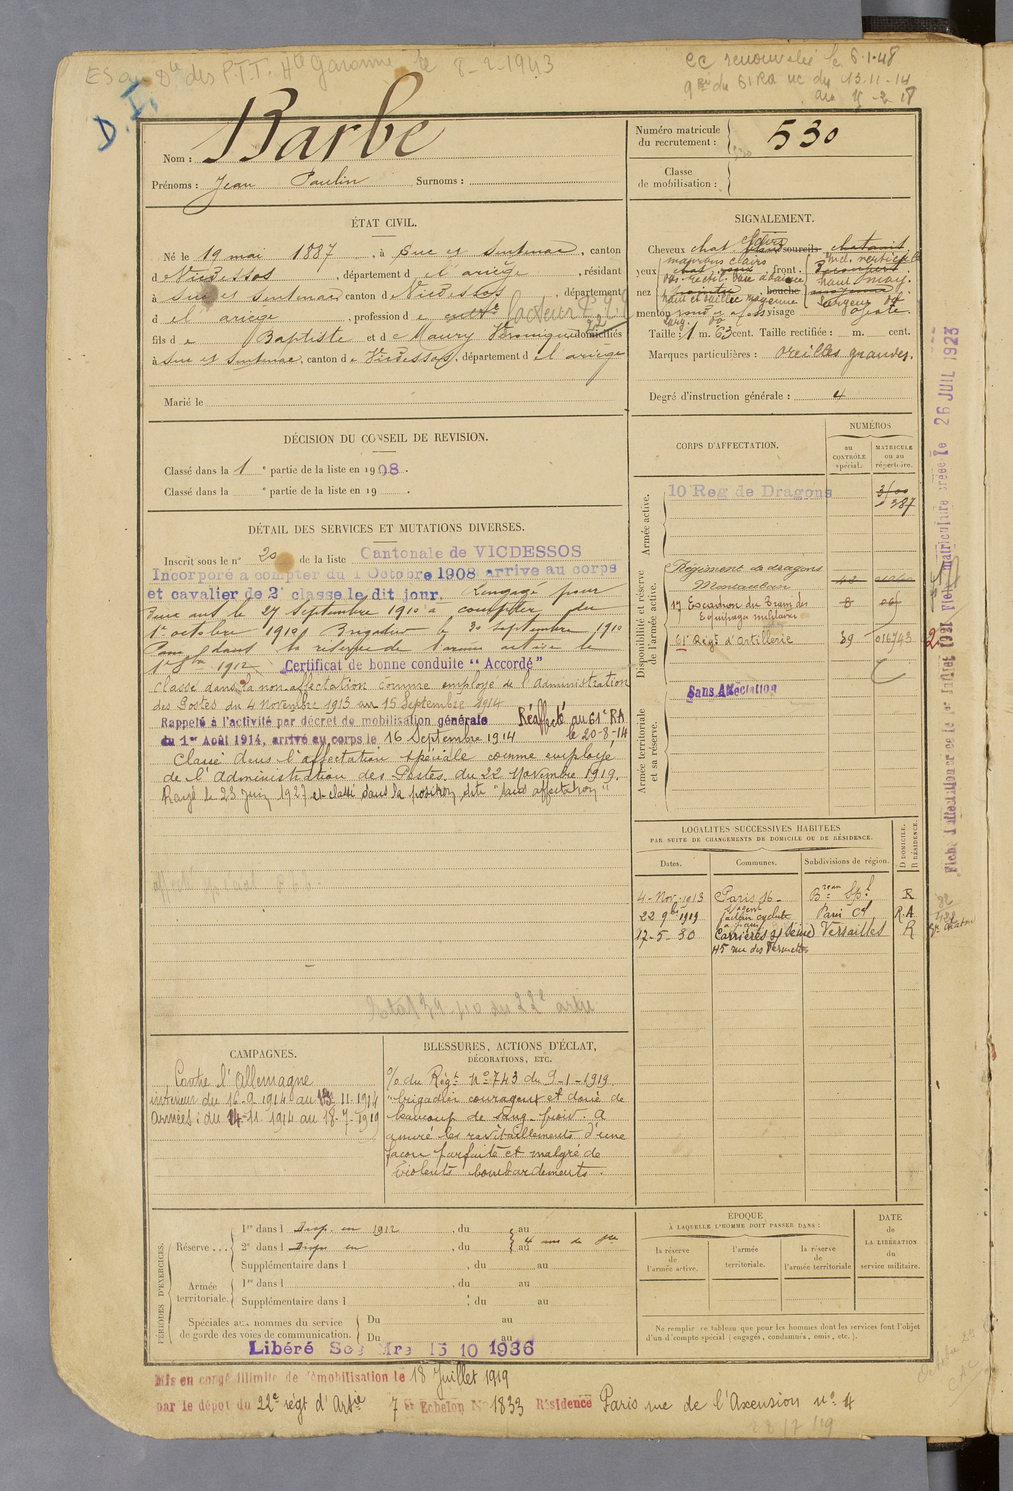 ES au des P.T.T. Hte Garonne le 8-2-1943
CC renouvelée le 6-1-48
9 du 61 RA UC du 13-11-14
au
D.I.
Nom : Barbe
Prénoms : Jean Paulin Surnoms :
Numéro matricule du recrutement : 530
Classe de mobilisation :
ÉTAT CIVIL.
Né le 19 mai 1887, à Suc et Sentenac, canton
d Vicdessos, département d el ariège, résidant
à Suc et Sentenac canton d Vicdessos, département
d el ariège, profession d e facteur
fils d e Baptiste et d e Maury Véronique domiciliés
à Suc et Sentenac, canton d e Vicdessos, département d el ariège
Marié le
SIGNALEMENT.
Cheveux chat. clairs sourcils châtains
yeux marrons clairs front :
nez
haut et saillie moyenne
menton rond visage
Taille : 1 m. 63 cent. Taille rectifiée : m. cent.
Marques particulières : oreilles grandes.
Degré d'instruction générale : 4
DÉCISION DU CONSEIL DE REVISION.
Classé dans la 1e partie de la liste en 1908.
Classé dans la e partie de la liste en 19 .
CORPS D'AFFECTATION.
NUMÉROS
AU CONTRÔLE spécial.
MATRICULE ou au répertoire.
Armée active.
10 Reg de Dragons
387
Disponibilité et réserve de l'armée active.
Régiment de dragons
Montauban
17 Escadron du Train des
Equipages militaires
8
61e Régt d'Artillerie 39 016743
Sans Affectation
Armée territoriale et sa réserve.
DÉTAIL DES SERVICES ET MUTATIONS DIVERSES.
Inscrit sous le n° 20 de la liste Cantonale de VICDESSOS
Incorporé à compter du 1 Octobre 1908 arrivé au corps
et cavalier de 2e classe le dit jour. Rengagé pour
deux ans le 27 septembre 1910 à compter du
1er octobre 1910. Brigadier le 30 septembre 1910
Passé dans la réserve de l'armée active le
1er 8bre 1912 Certificat de bonne conduite "Accordé"
Classé dans la non affectation comme employé de l'administration
des Postes du 4 Novembre 1913 au 15 Septembre 1914
Rappelé à l'activité par décret de mobilisation générale Réaffecté au 61e RA
du 1er Août 1914, arrivé au corps le 16 Septembre 1914 le 20-8-14
Classé dans l'affectation spéciale comme employé
de l'Administration des Postes du 22 Novembre 1919.
Rayé le 23 Juin 1927 et classé dans la position dite "sans affectation"
LOCALITÉS SUCCESSIVES HABITÉES
PAR SUITE DE CHANGEMENTS DE DOMICILE OU DE RÉSIDENCE.
Dates. Communes. Subdivisions de région. D DOMICILE. R RÉSIDENCE.
4-Nov-1913 Paris 16 R
22 9bre 1919 facteur cycliste Paris R.A
17-5-30 Carrières s/ Seine Versailles R
45 rue des
Fiche d'affectation créée le 1er Juillet 1921 Fiche matriculaire créée le 26 JUIL 1923
CAMPAGNES.
Contre l'Allemagne
intérieur du 16-9-1914 au 13-11-1914
Armées : du 14-11-1914 au 18-7-1919
BLESSURES, ACTIONS D'ÉCLAT,
DÉCORATIONS, ETC.
O/ du Régt N° 743 du 9-1-1919.
"brigadier courageux et doué de
beaucoup de sang-froid. A
assuré les ravitaillements d'une
façon parfaite et malgré de
violents bombardements.
PÉRIODES D'EXERCICES.
Réserve...
1re dans l Drag. en 1912, du au
2e dans l Drag. en, du au
4 ans de
Supplémentaire dans l, du au
Armée territoriale.
1re dans l, du au
Supplémentaire dans l, du au
Spéciales aux hommes du service
de garde des voies de communication.
Du au
Du au
Libéré Sce Mre 15 10 1936
EPOQUE
À LAQUELLE L'HOMME DOIT PASSER DANS :
la réserve de l'armée active.
l'armée territoriale.
la réserve de l'armée territoriale
DATE de LA LIBÉRATION du service militaire.
Ne remplir ce tableau que pour les hommes dont les services font l'objet
d'un décompte spécial (engagés, condamnés, omis, etc.).
Mis en congé illimité de démobilisation le 18 Juillet 1919
par le dépôt du 22e régt d'Artie 7e Echelon N° 1833 Résidence Paris rue de l'Ascension n° 4
28/7/19